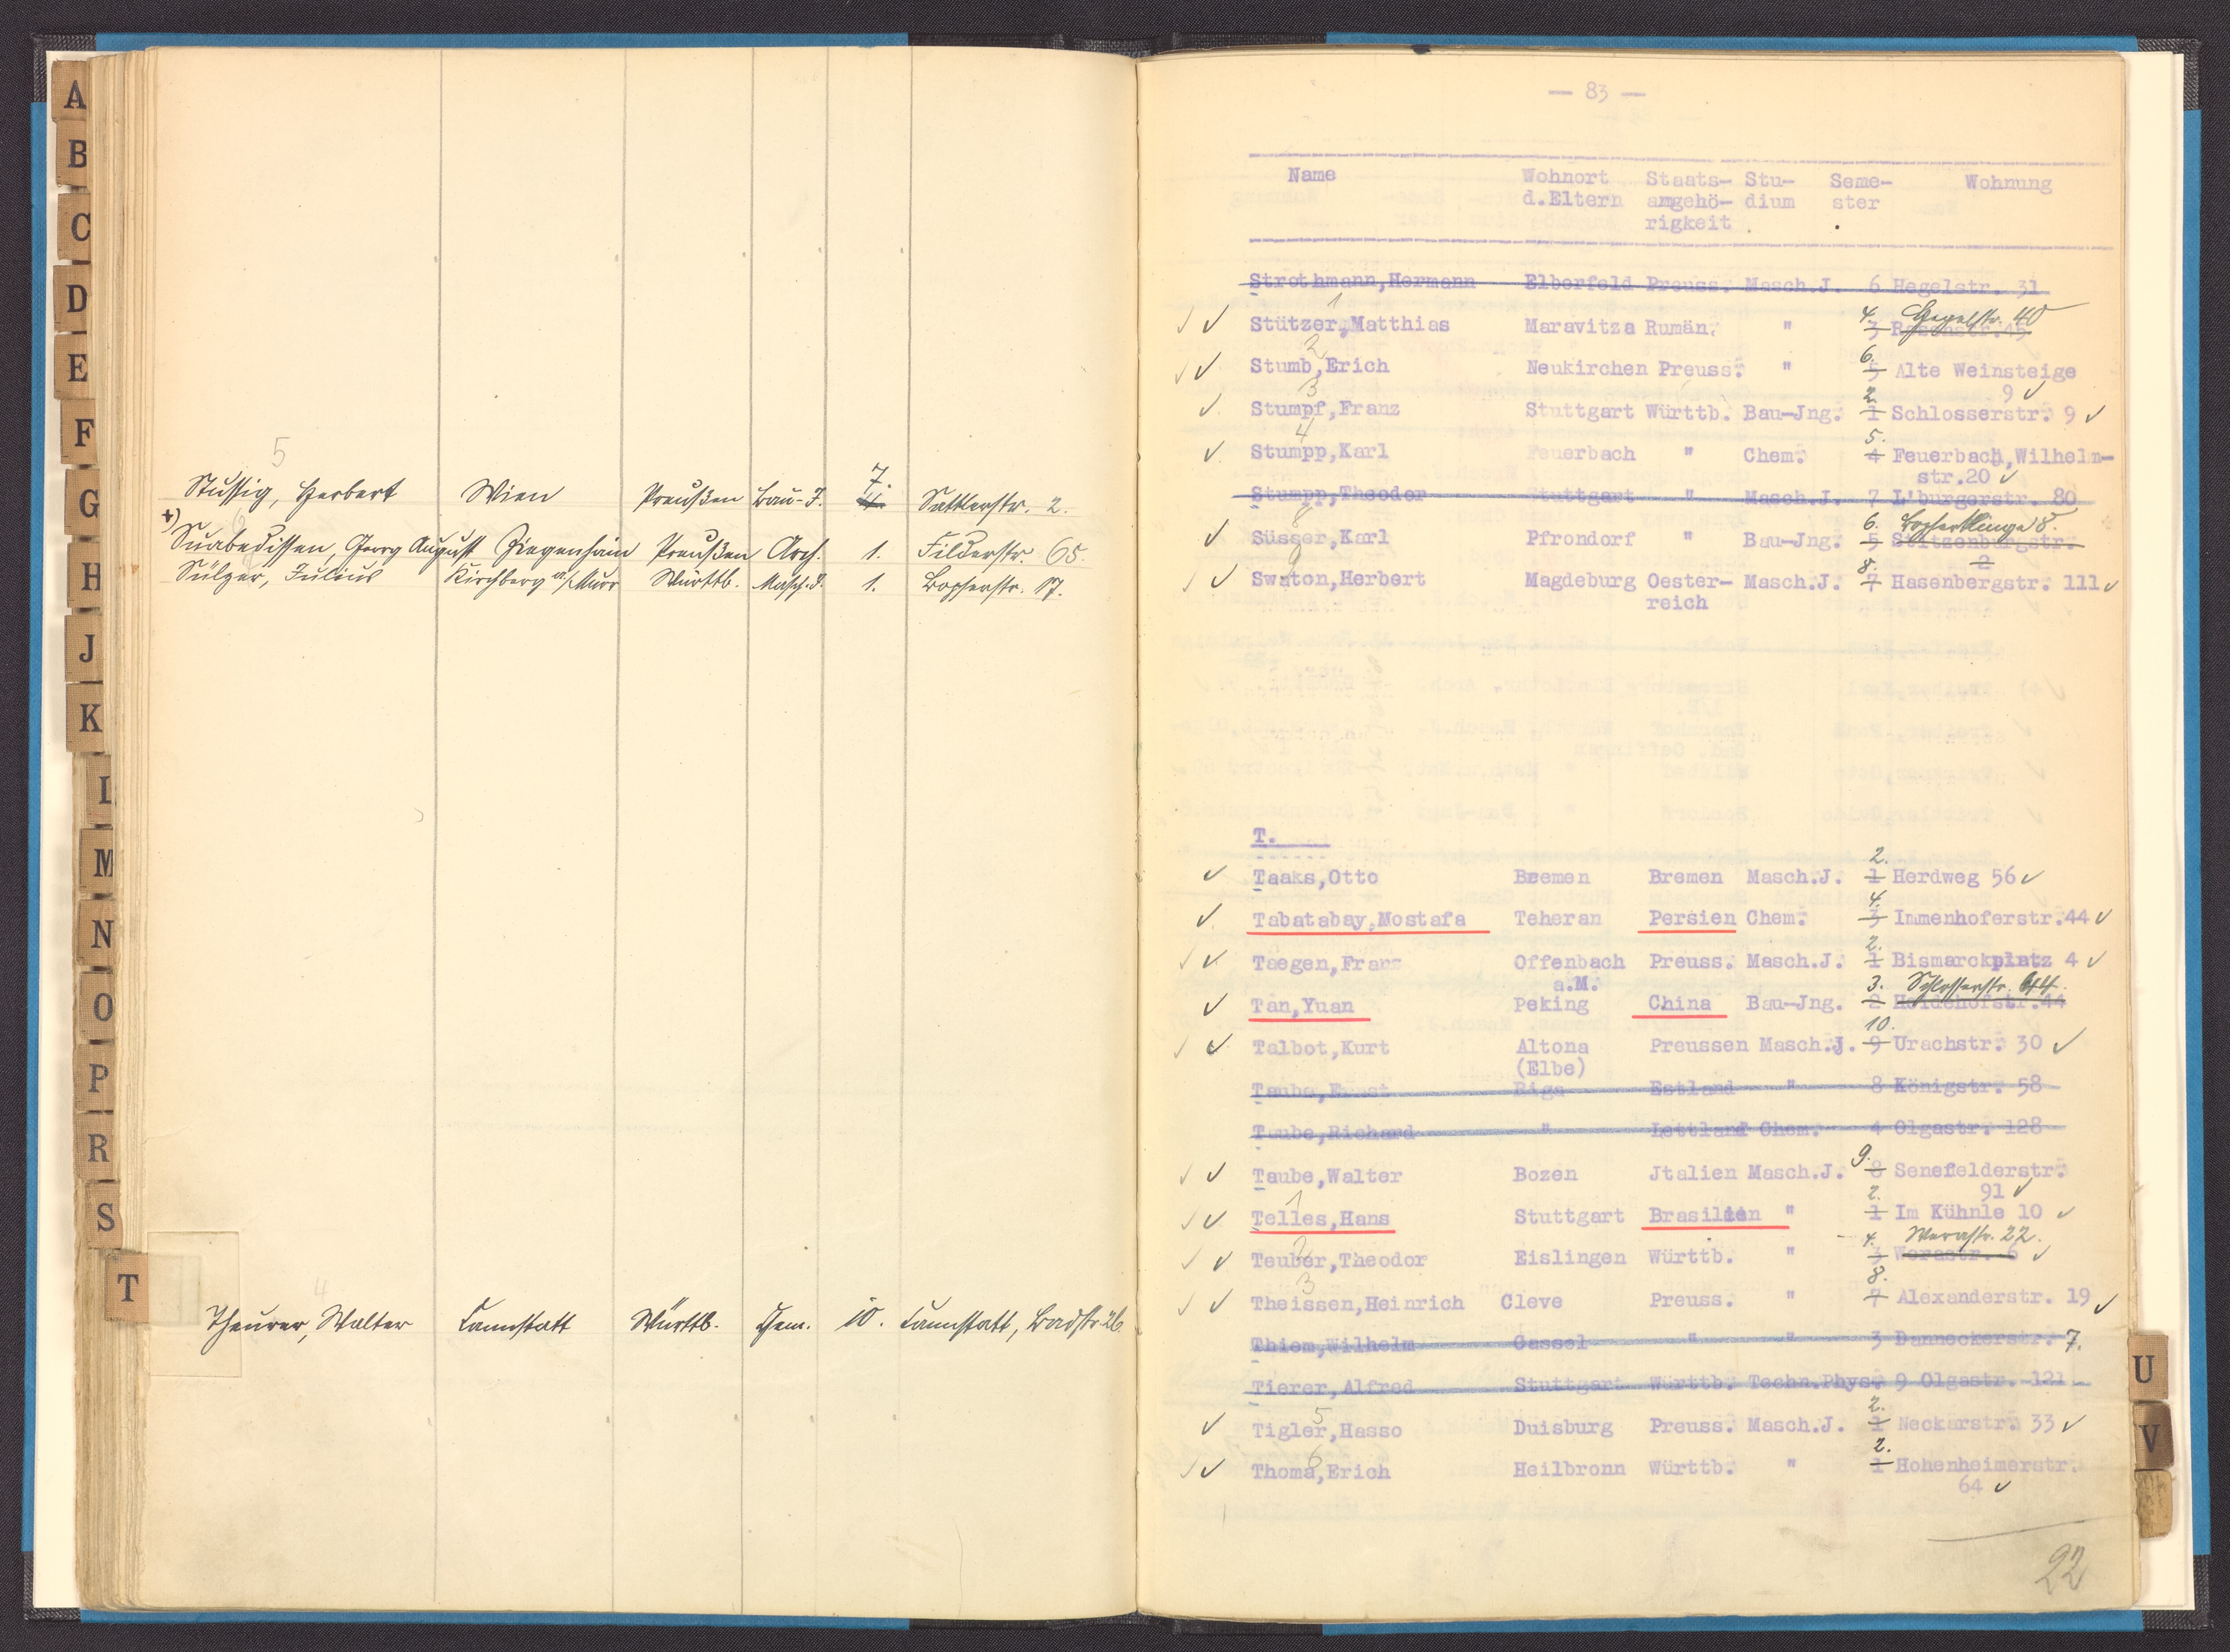 A
B
C
D
E
F
G
H
J
K
L
M
N
O
P
R
S
T
5
Stussig, Herbert Wien Preußen Bau-J. 7. Sattlerstr. 2.
+)
Suabedissen, Georg August Ziegenhain Preußen Arch. 1. Filderstr. 65.
Sülzer, Julius Kirchberg a/Murr Württb. Masch.J. 1. Bopserstr. 17.
4
Theurer, Walter Cannstatt Württb. Chem. 10. Cannstatt, Badstr. 26.
— 83 —
Name Wohnort Staats- Stu- Seme- Wohnung
d.Eltern angehö- dium ster
rigkeit
Strothmann,Hermann Elberfeld Preuss. Masch.J. 6 Hegelstr. 31
1 4. Hegelstr. 40
Stützer,Matthias Maravitza Rumän. " 3
2 6.
Stumb,Erich Neukirchen Preuss. " 5 Alte Weinsteige
3 2. 9
Stumpf,Franz Stuttgart Württb. Bau-Jng. 1 Schlosserstr. 9
4 5.
Stumpp,Karl Feuerbach " Chem. 4 Feuerbach,Wilhelm-
str.20
Stumpp,Theodor Stuttgart " Masch.J. 7 L'burgerstr. 80
8 6. Bopserklinge 8.
Süsser,Karl Pfrondorf " Bau-Jng. 5 Stitzenburgstr.
2
9 8.
Swaton,Herbert Magdeburg Oester- Masch.J. 7 Hasenbergstr. 111
reich
T.
2.
Taaks,Otto Bremen Bremen Masch.J. 1 Herdweg 56
4.
Tabatabay,Mostafa Teheran Persien Chem. 3 Immenhoferstr.44
2.
Taegen,Franz Offenbach Preuss. Masch.J. 1 Bismarckplatz 4
a.M. 3. Schlosserstr. 44.
Tan,Yuan Peking China Bau-Jng. 2 Heidehofstr.44
10.
Talbot,Kurt Altona Preussen Masch.J. 9 Urachstr. 30
(Elbe)
Taube,Ernst Riga Estland " 8 Königstr. 58
Taube,Richard " Lettland Chem. 4 Olgastr. 128
9.
Taube,Walter Bozen Jtalien Masch.J. 8 Senefelderstr.
1 2. 91
Telles,Hans Stuttgart Brasilien " 1 Im Kühnle 10
2 4. Werastr. 22.
Teuber,Theodor Eislingen Württb. " 3 Werastr. 6
3 8.
Theissen,Heinrich Cleve Preuss. " 7 Alexanderstr. 19
Thiem,Wilhelm Cassel " " 3 Danneckerstr. 7.
Tierer,Alfred Stuttgart Württb. Techn.Phys. 9 Olgastr. 121
5 2.
Tigler,Hasso Duisburg Preuss. Masch.J. 1 Neckarstr. 33
6 2.
Thoma,Erich Heilbronn Württb. " 1 Hohenheimerstr.
64
22
U
V